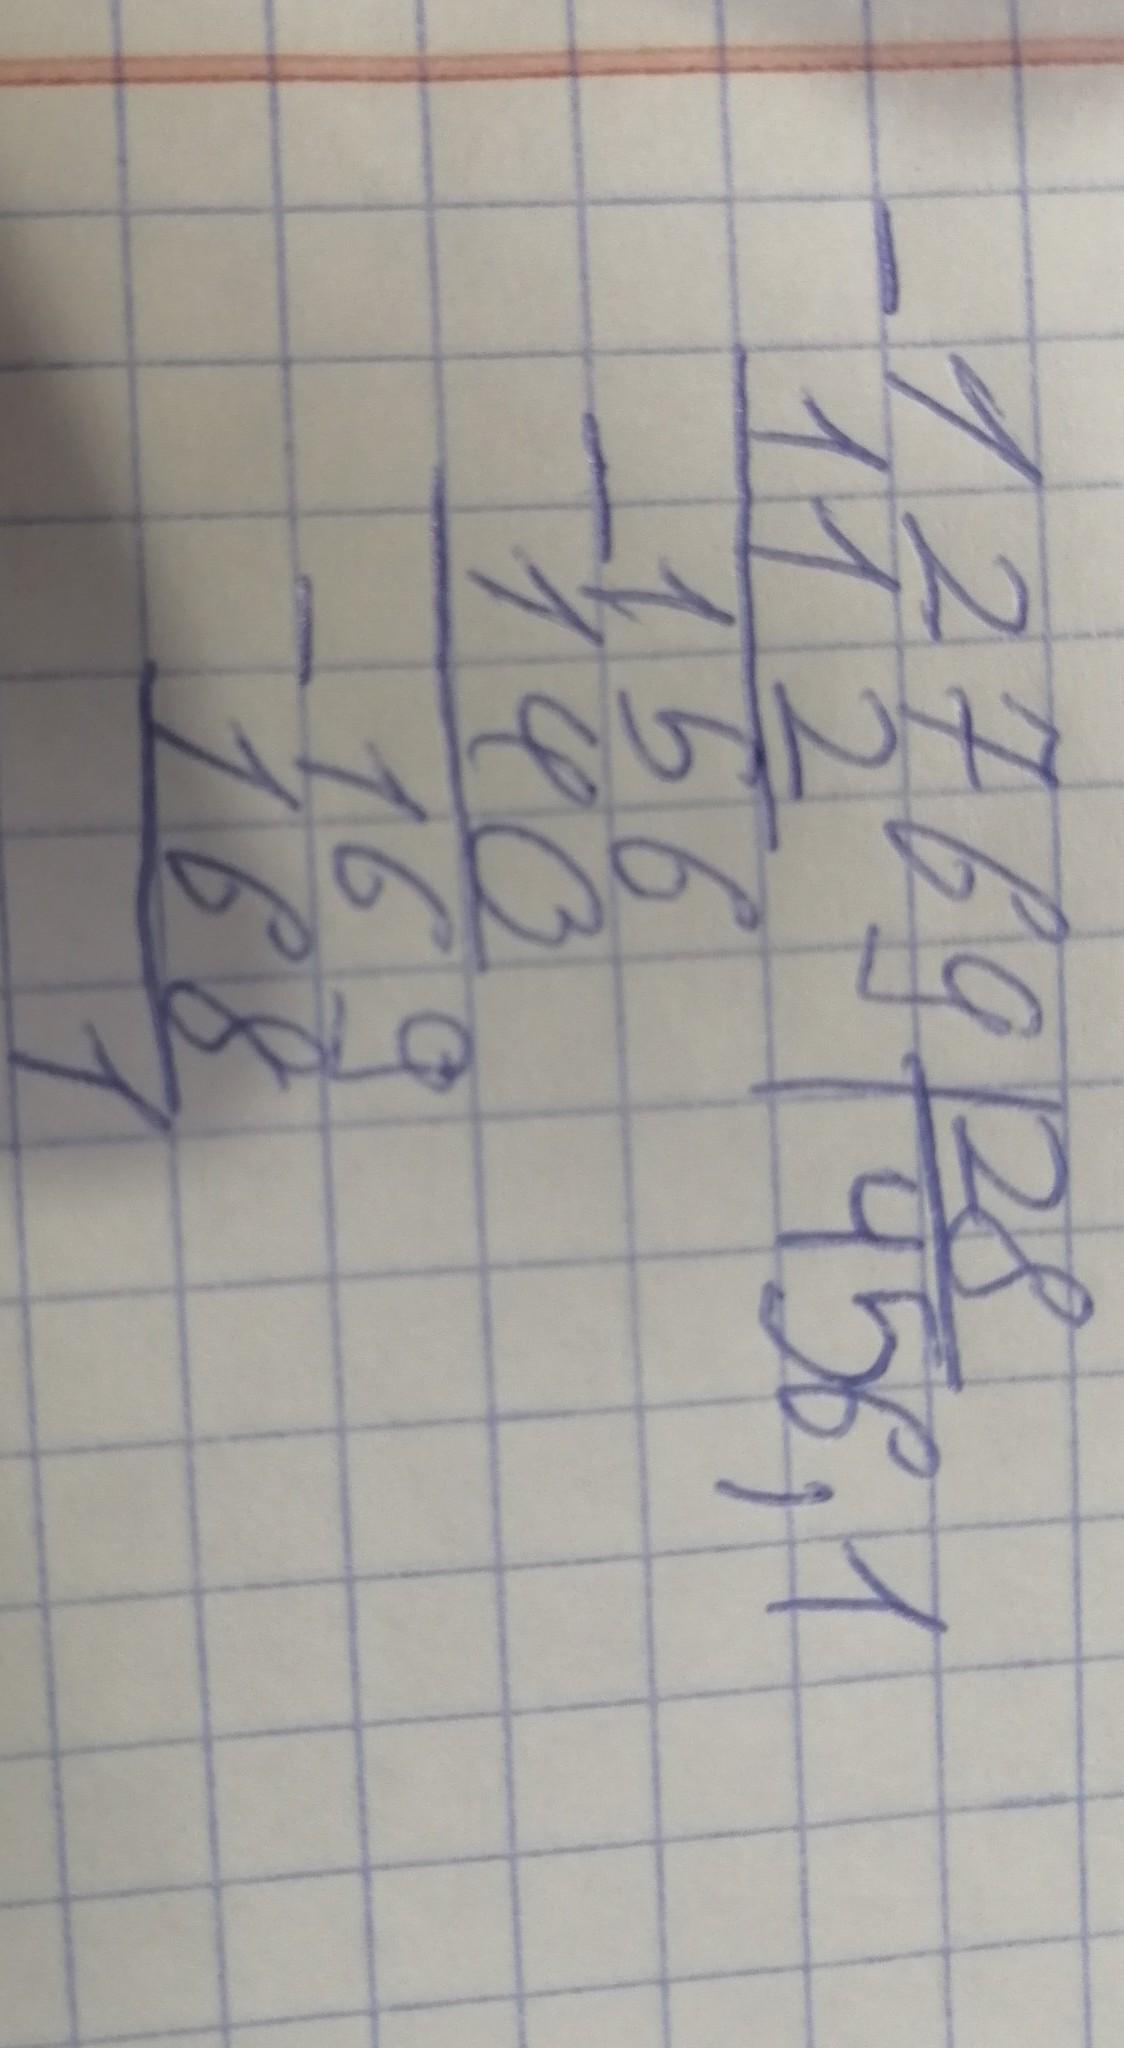 - 12769 | 28
112 | 456,1
- 156
140
- 169
168
1